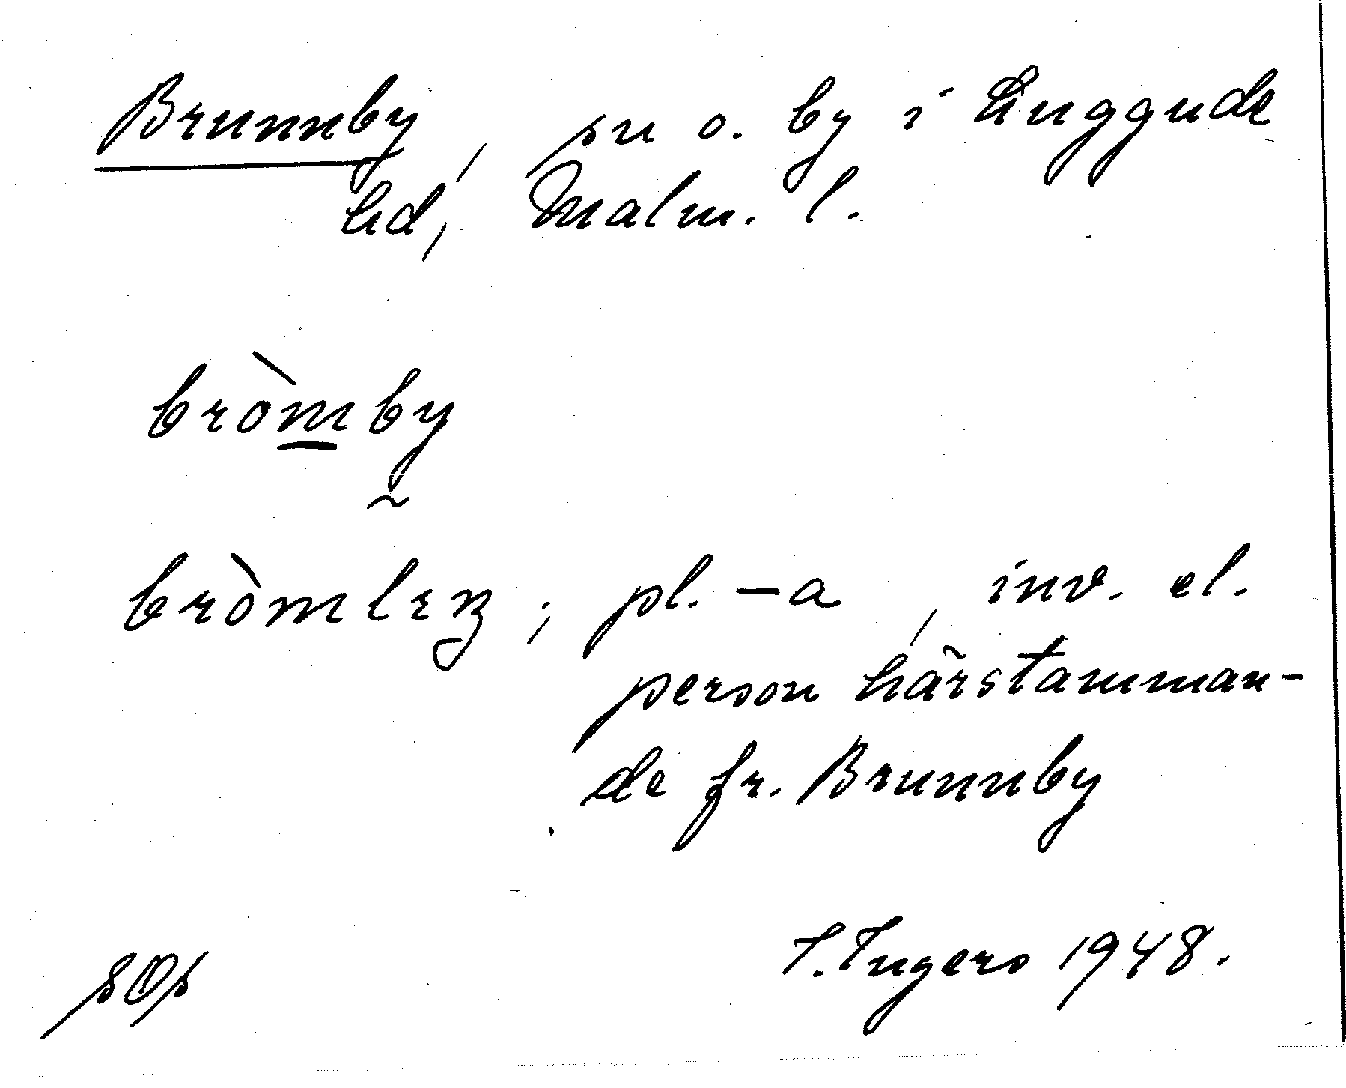 Brunnby, sn o. by i Luggude
hd, Malm. l.
bròmby
bròmlɛʒ, pl. -a, inv. el.
person härstamman-
de fr. Brunnby
I. Ingers 1948.